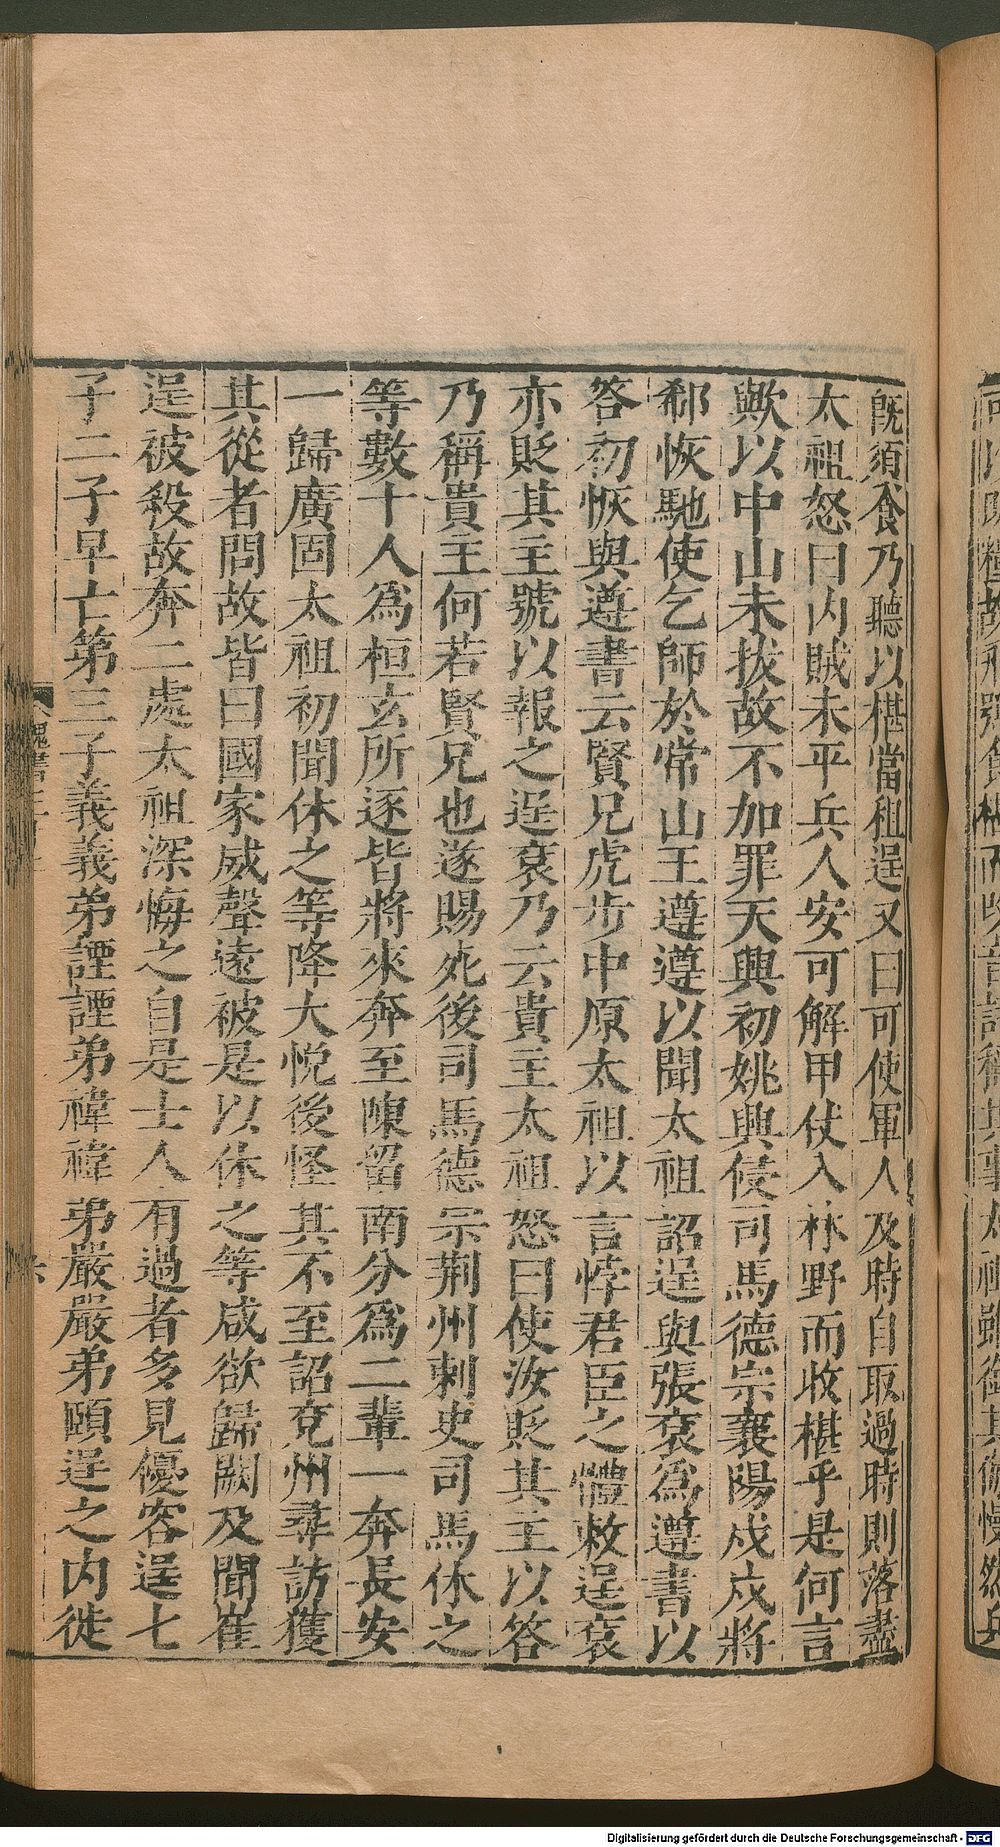 既須食乃聽以椹當租逞又曰可使軍人及時自取過時則落盡
太祖怒曰内賊未平兵人安可解甲仗入林野而收椹乎是何言
歟以中山未拔故不加罪天興初姚興侵司馬德宗襄陽戍戍將
郗恢馳使乞師於常山王遵遵以聞太祖詔逞與張袞爲遵書以
答初恢與遵書云賢兄虎步中原太祖以言悖君臣之體敕逞袞
亦貶其主號以報之逞袞乃云貴主太祖怒曰使汝貶其主以答
乃稱貴主何若賢兄也遂賜死後司馬德宗荆州刺史司馬休之
等數十人爲桓玄所逐皆將來奔至陳留南分爲二輩一奔長安
一歸廣固太祖初聞休之等降大悅後怪其不至詔兖州尋訪獲
其從者問故皆曰國家威聲遠被是以休之等咸欲歸闕及聞崔
逞被殺故奔二處太祖深悔之自是士人有過者多見優容逞七
子二子早亡第三子義義弟諲諲弟禕禕弟嚴嚴弟頤逞之内徙
魏書
六
Digitalisierung gefördert durch die Deutsche Forschungsgemeinschaft - DFG